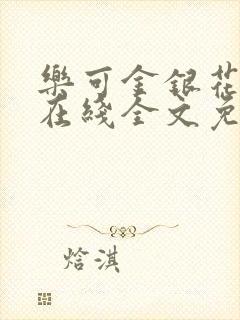 樂可金銀花
在綫全文免
焓淇